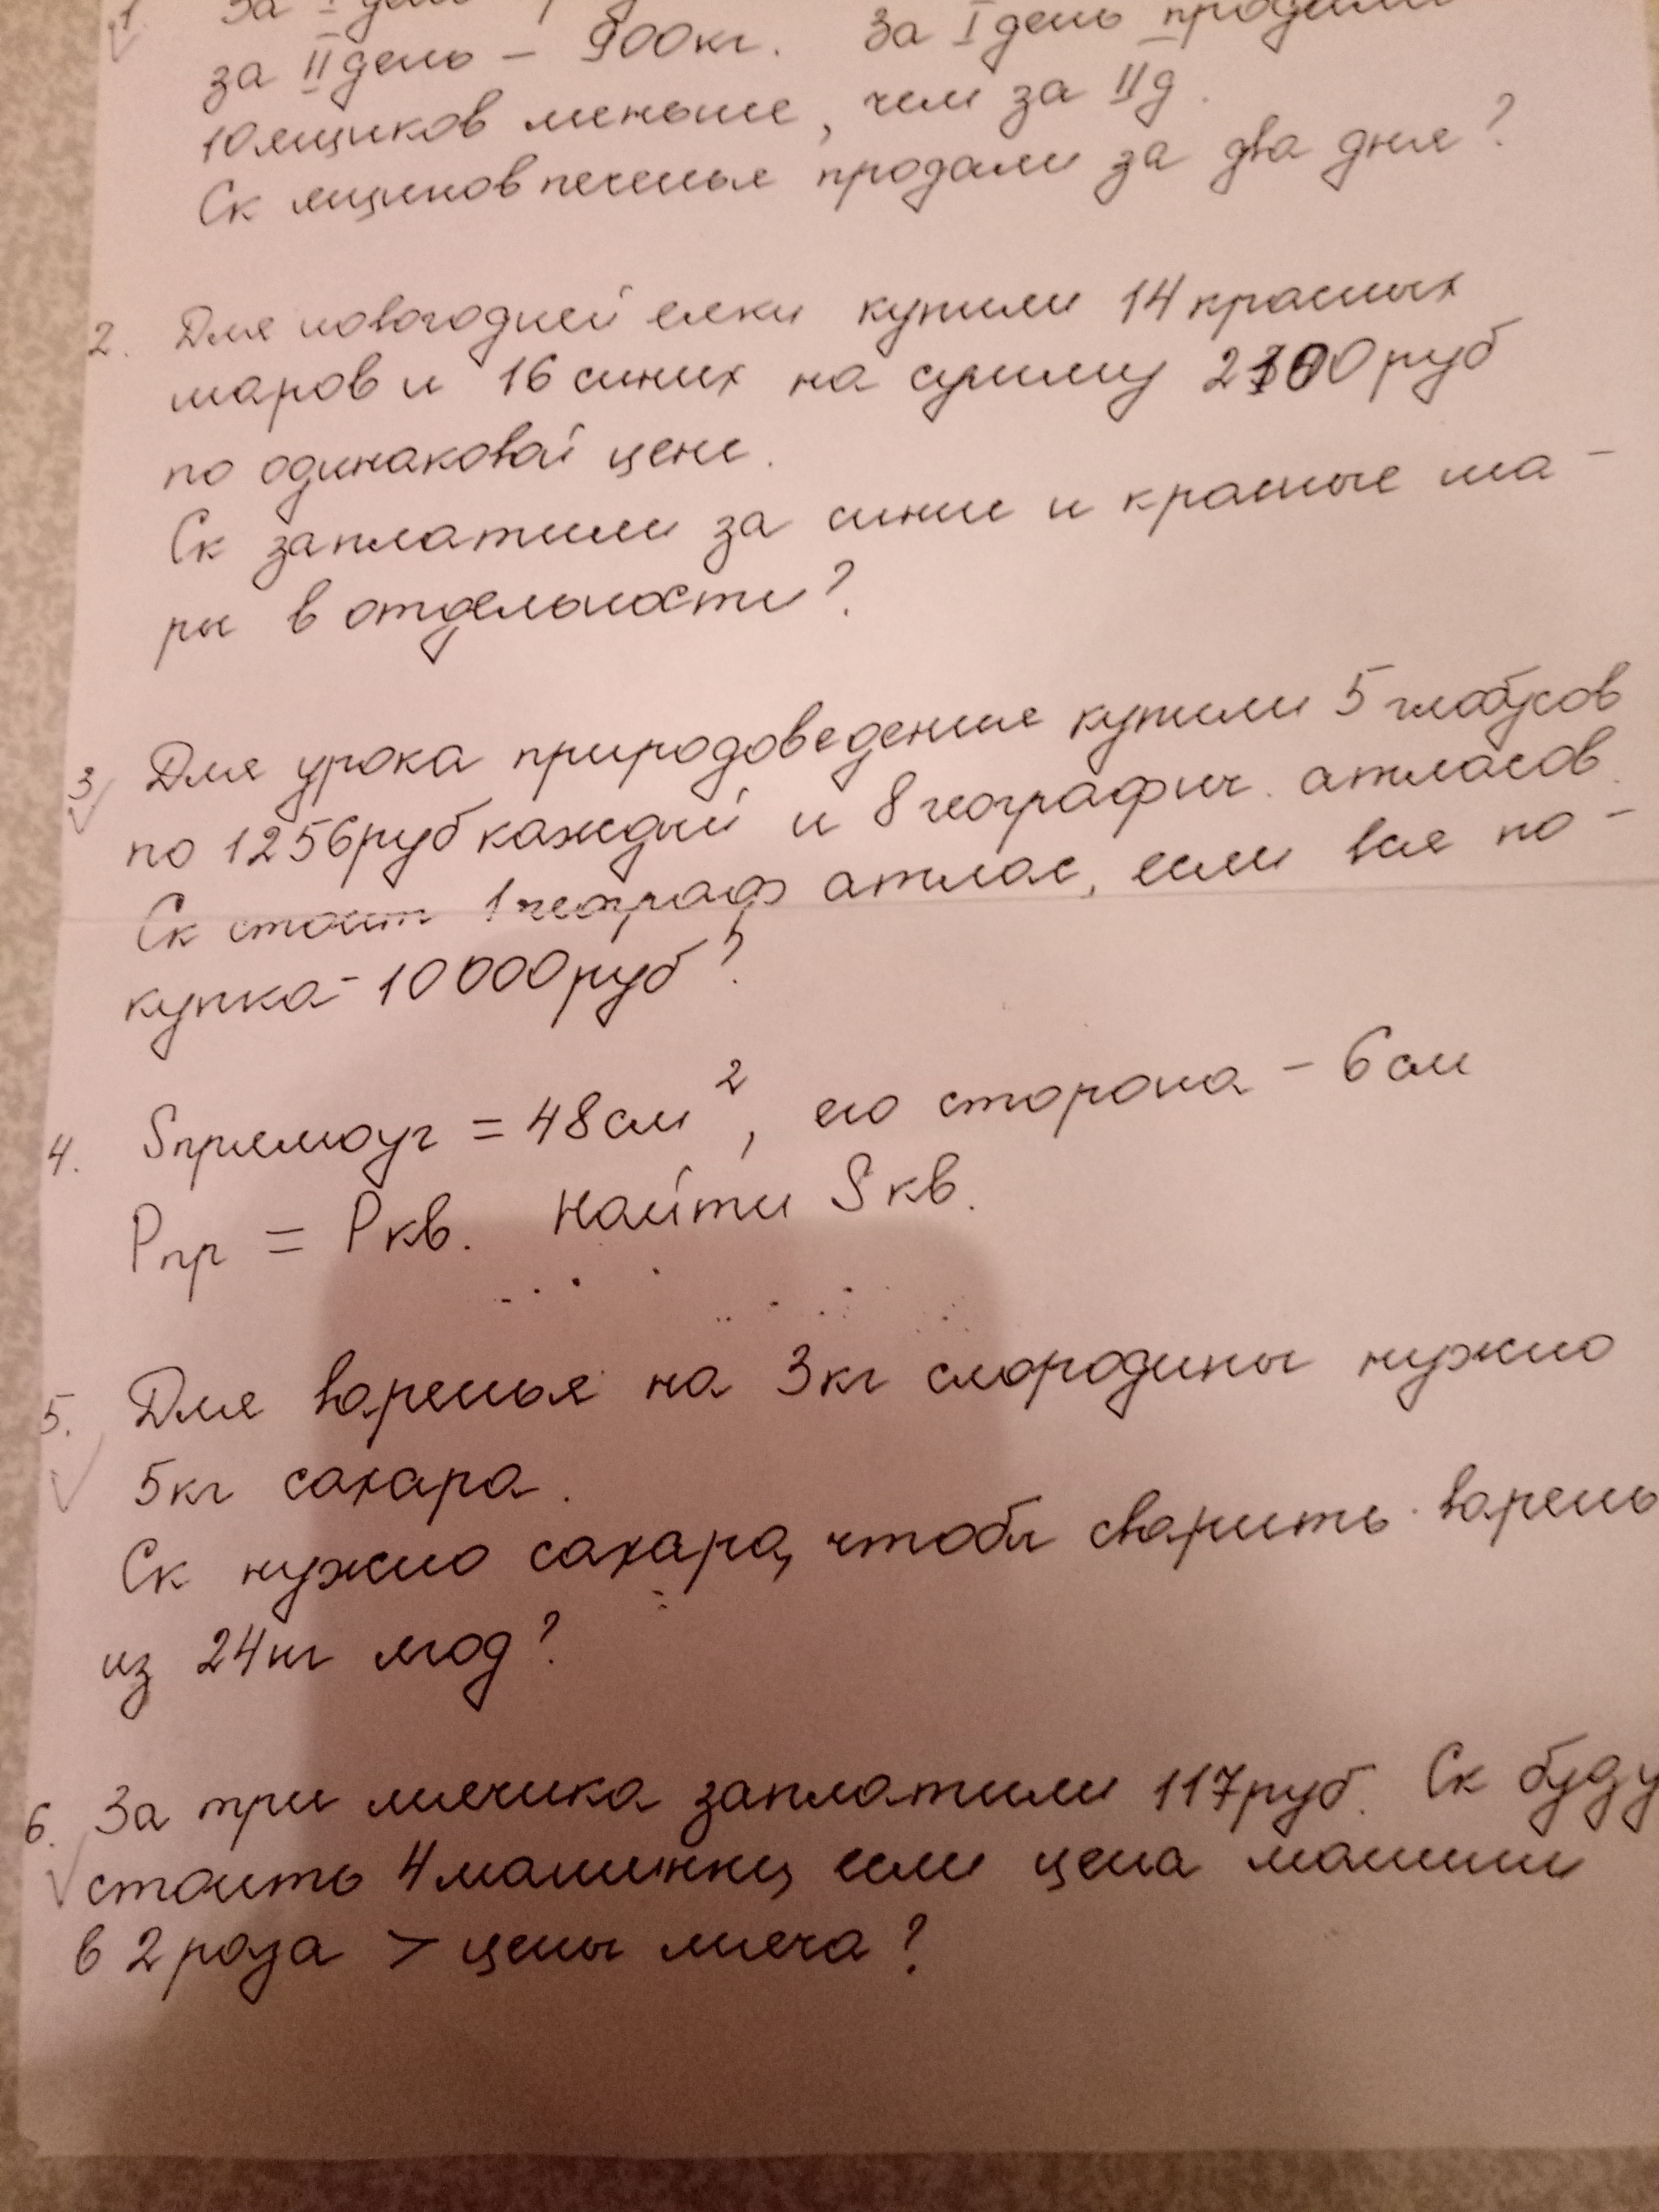 1 За I день
за II день – 900кг. За I день продали
10 ящиков меньше, чем за IIд.
Ск ящиков печенья продали за два дня?
2. Для новогодней елки купили 14 красных
шаров и 16 синих на сумму 2100 руб
по одинаковой цене.
Ск заплатили за синие и красные ша-
ры в отдельности?
3 Для урока природоведения купили 5 глобусов
по 1256руб каждый и 8 географич. атласов.
Ск стоит 1 географ атлас, если вся по-
купка - 10000руб?
4. Sпрямоуг = 48см², его сторона - 6см
Pпр = Pкв. Найти Sкв.
5. Для варенья на 3кг смородины нужно
5кг сахара.
Ск нужно сахара, чтобы сварить варень
из 24кг ягод?
6. За три мячика заплатили 117руб. Ск буду
стоить 4 машинки, если цена машин
в 2 раза > цены мяча?